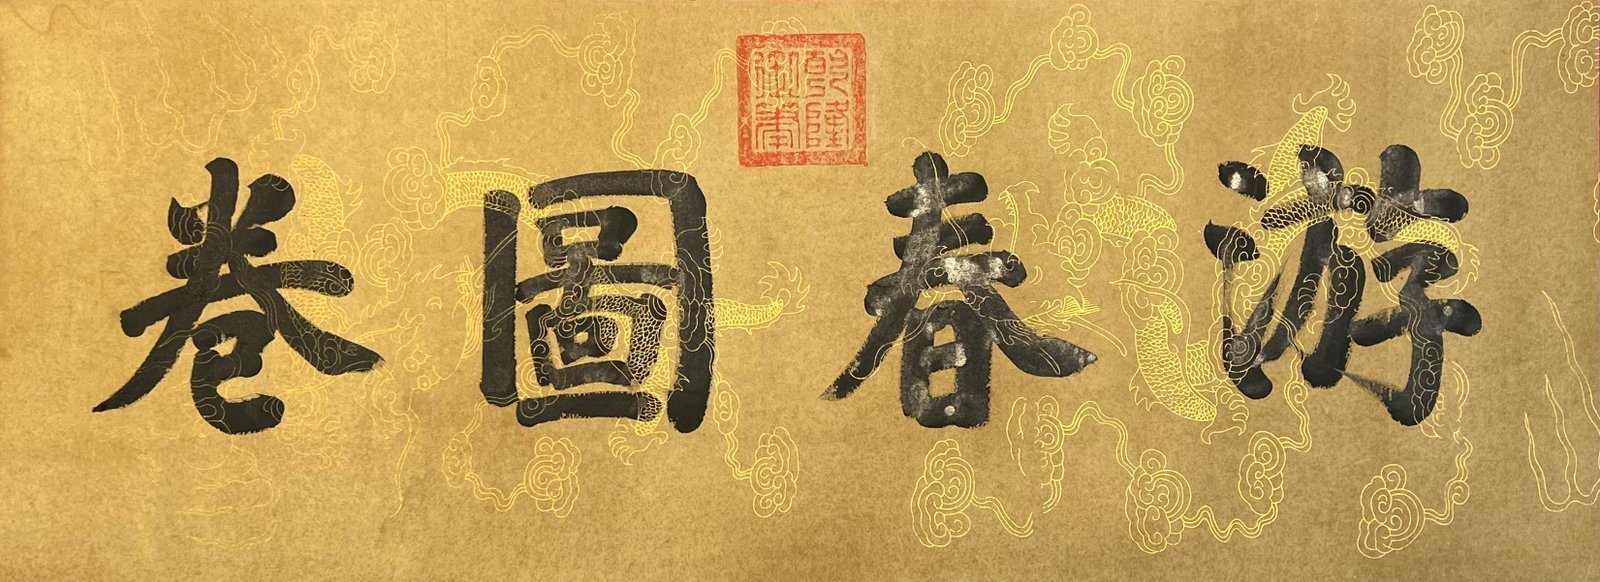 游春圖卷
乾隆御筆